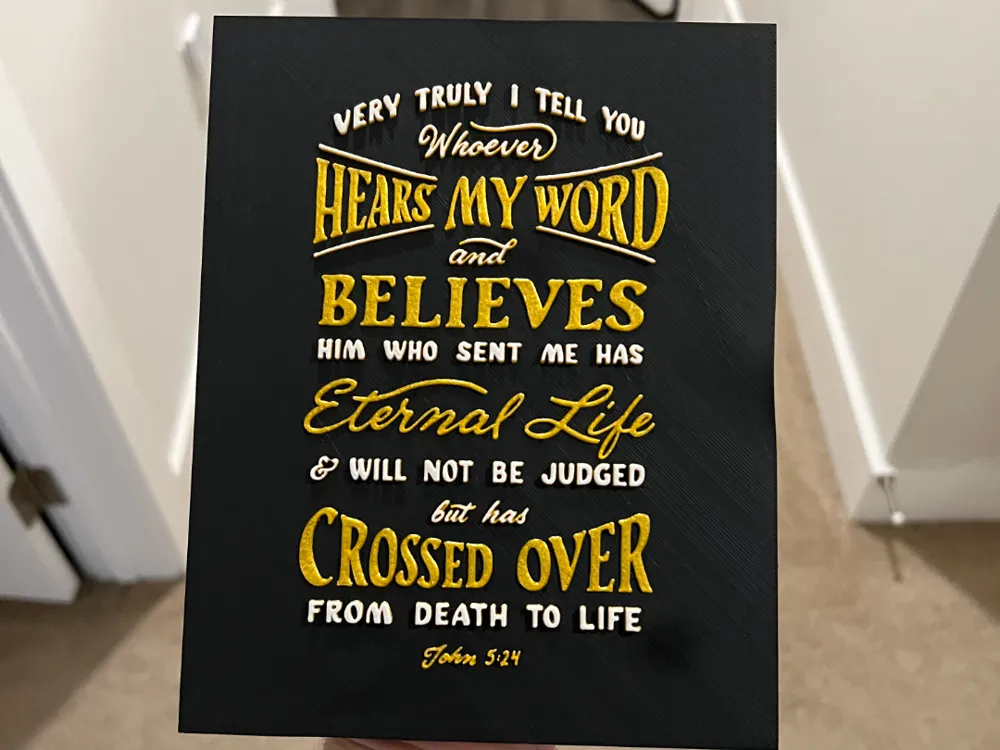 VERY TRULY I TELL YOU
Whoever
HEARS MY WORD
and
BELIEVES
HIM WHO SENT ME HAS
Eternal Life
& WILL NOT BE JUDGED
but has
CROSSED OVER
FROM DEATH TO LIFE
John 5:24